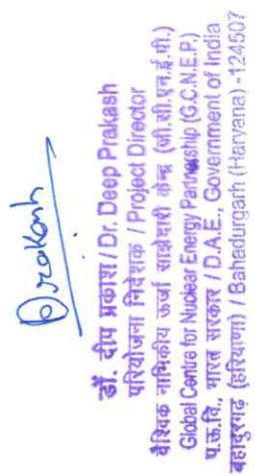 Prakash
डॉ. दीप प्रकाश / Dr. Deep Prakash
परियोजना निदेशक / Project Director
वैश्विक नाभिकीय ऊर्जा साझेदारी केन्द्र (जी.सी.एन.ई.पी.)
Global Centre for Nuclear Energy Partnership (G.C.N.E.P.)
प.ऊ.वि., भारत सरकार / D.A.E., Government of India
बहादुरगढ़ (हरियाणा) / Bahadurgarh (Haryana) -124507